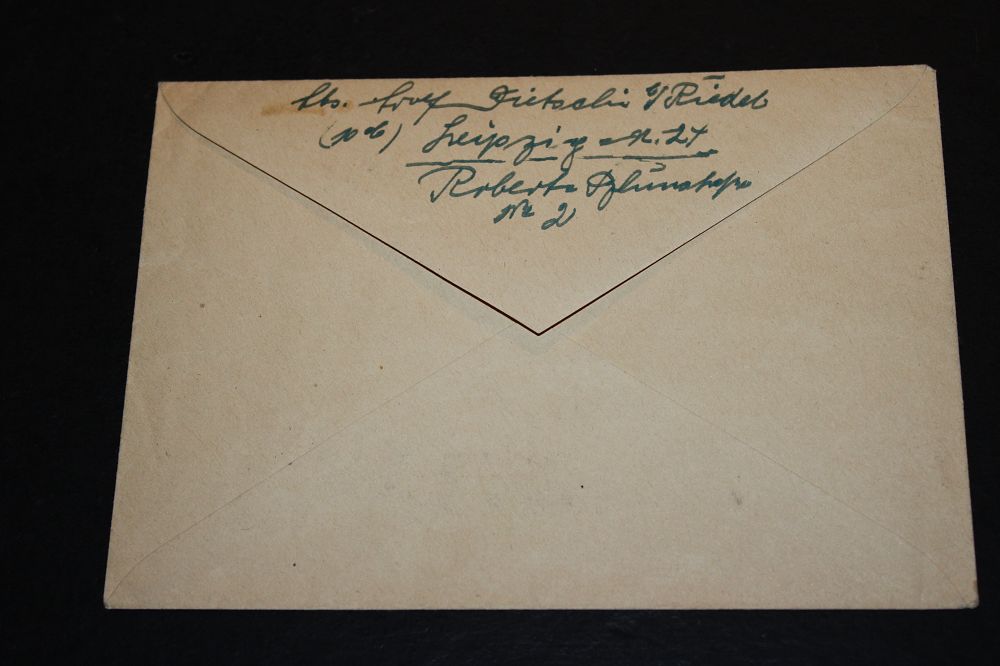 Abs. Adolf Dietschi b/ Riedel
(10b) Leipzig N. 24
Robert Blumstr.
Nr 2